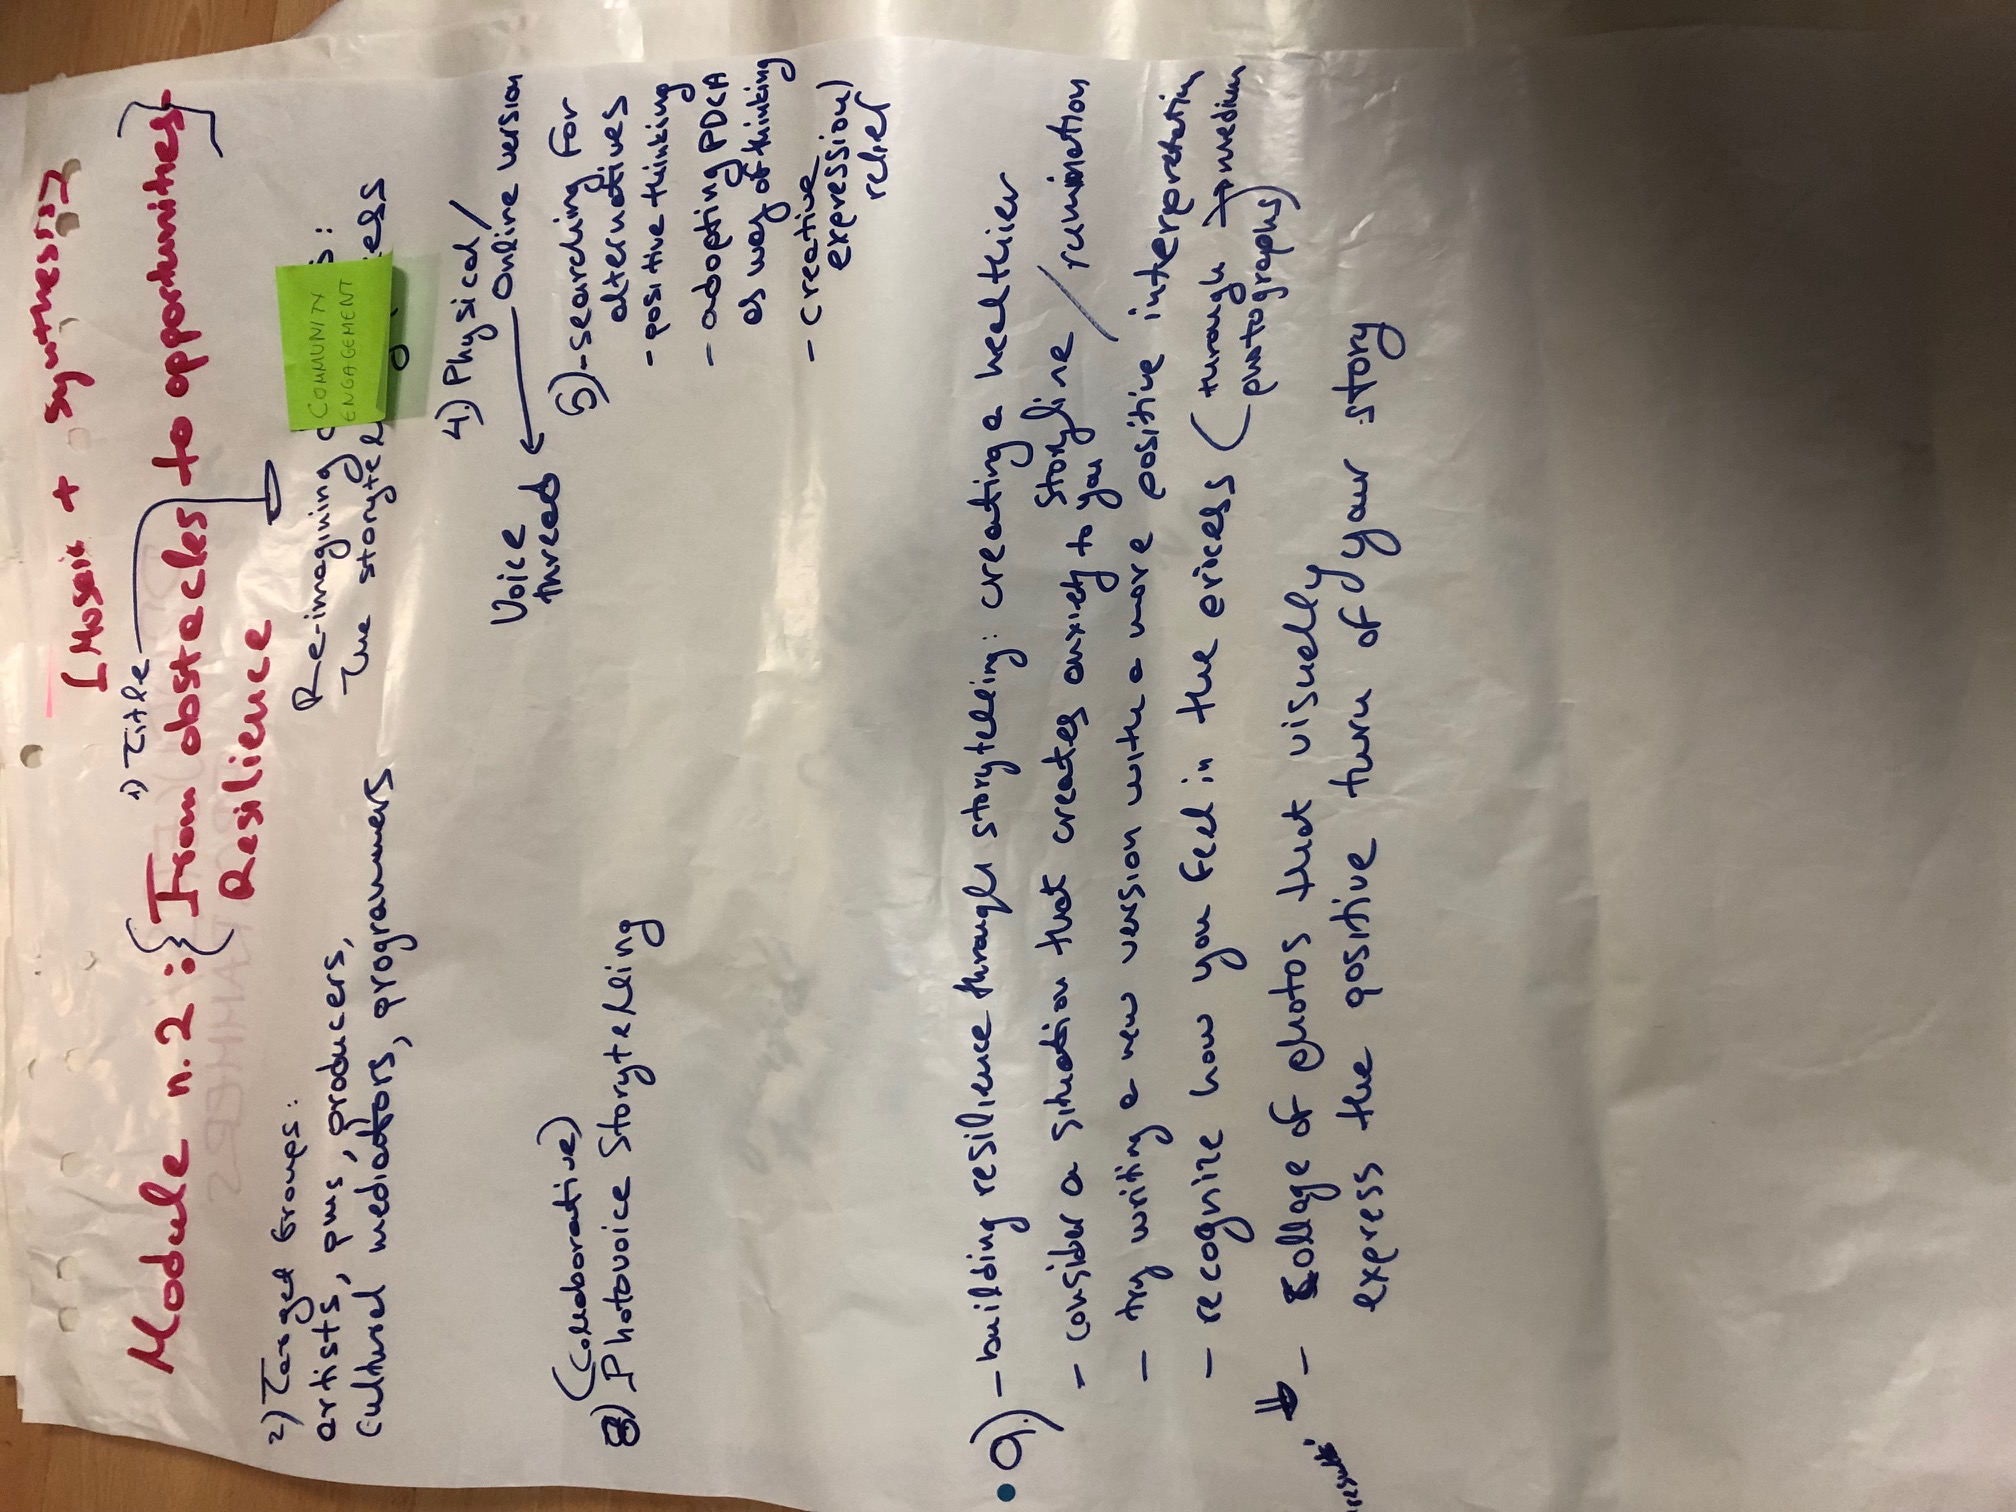 [Mosaic + synthesis]
1) Title
Module n. 2 : {From obstacles to opportunities}
Resilience
2) Target Groups:
artists, pms, producers,
cultural mediators, programmers
Re-imagining
The storytel
COMMUNITY
ENGAGEMENT
4.) Physical/
Online version
Voice
thread
5) - searching for
alternatives
- positive thinking
- adopting PDCA
as way of thinking
- creative
expression)
relief
(Collaborative)
8) Photovoice Storytelling
9.) - building resilience through storytelling: creating a healthier
storyline
- consider a situation that creates anxiety to you / rumination
- try writing a new version with a more positive interpretation
- recognize how you feel in the process (through → medium
photographs)
results:
- Collage of photos that visually
express the positive turn of your story